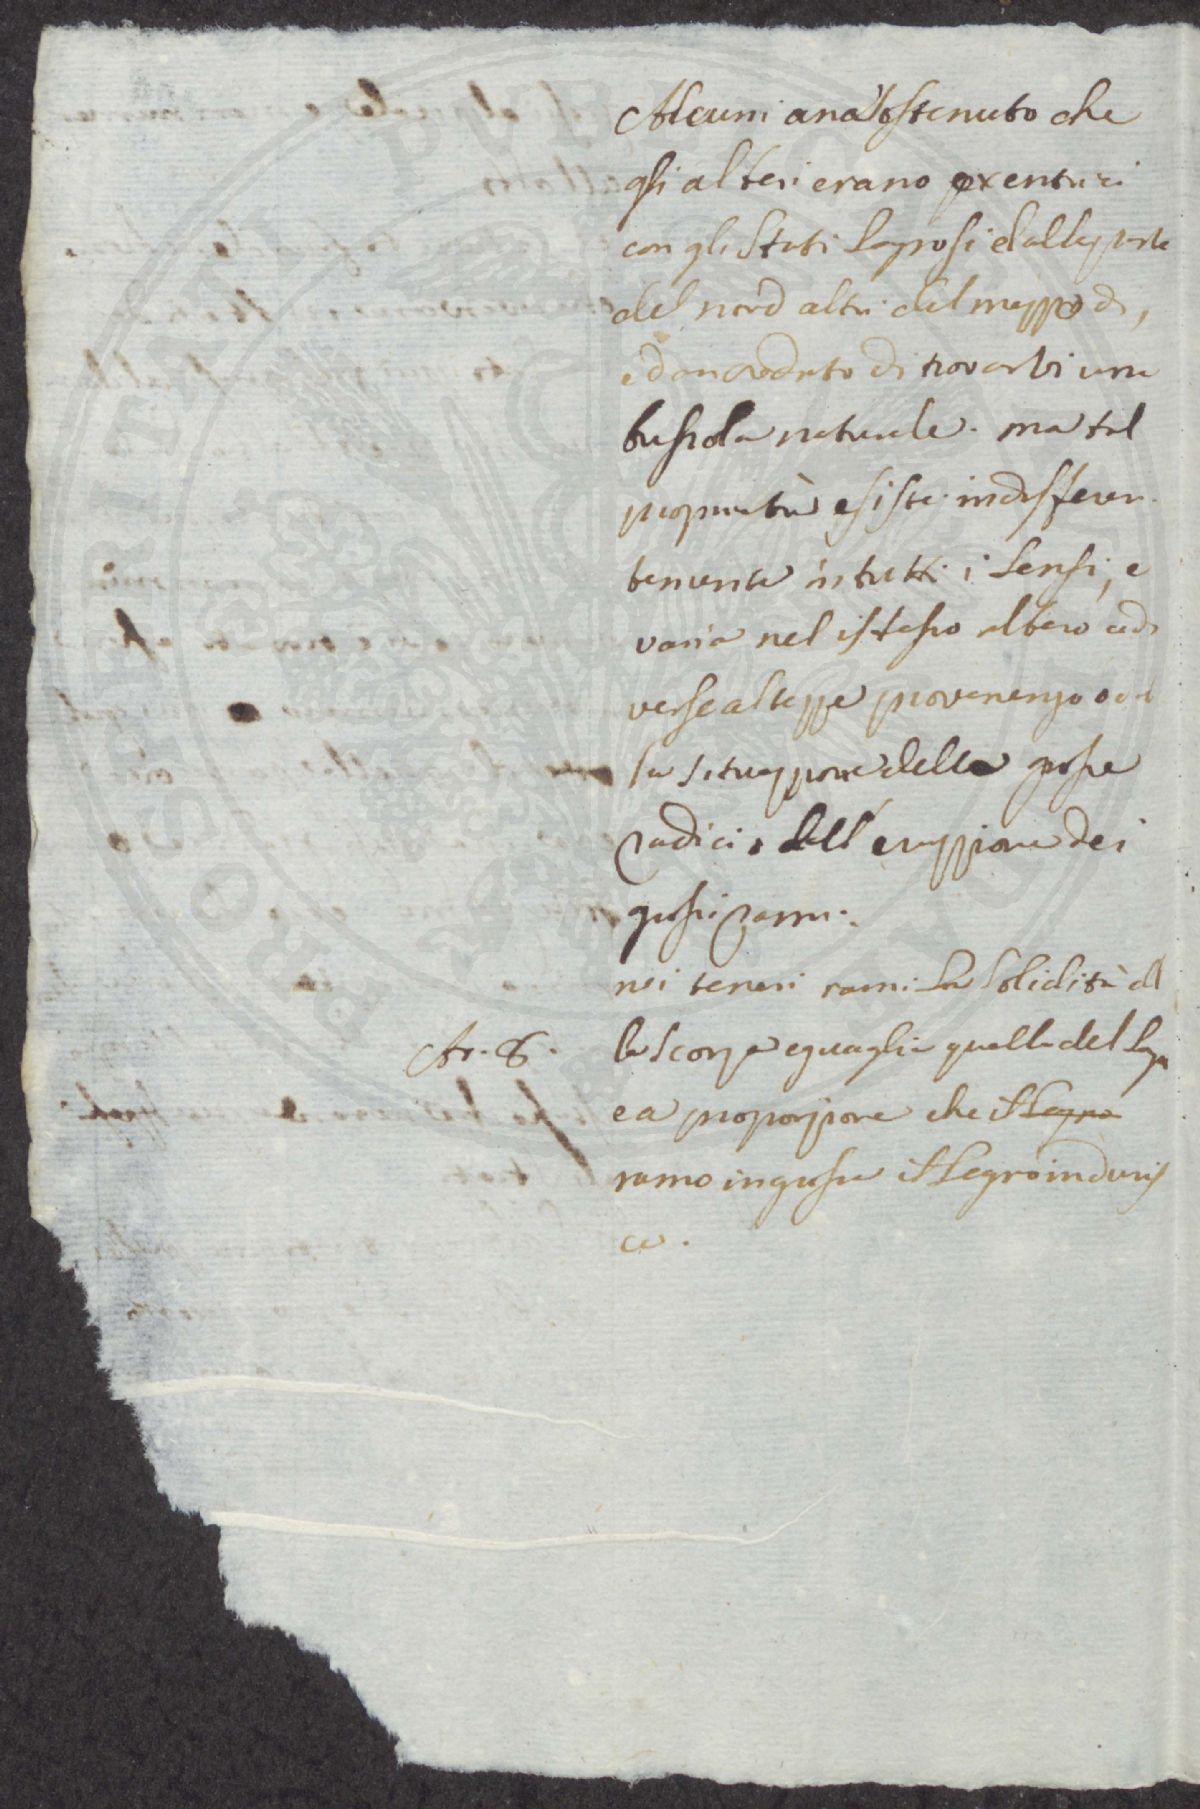 Alcuni anà sostenuto che
gli alberi erano excentrici
con gli Strati Legnosi dalla parte
del nord altri del mezzodi,
ed an creduto di trovarvi una
bussola naturale. ma tal
proprietà esiste indifferen-
temente in tutti i sensi, e
varia nel istesso albero a di
verse altezze provenendo dal
la situazzione delle grosse
radici, dell'eruzzione dei
grossi rami.
nei teneri rami la solidità del
Ar. 8. la scorza eguaglia quella del Leg
e a proporzione che il Legno
ramo ingrossa il Legno induris
ce.